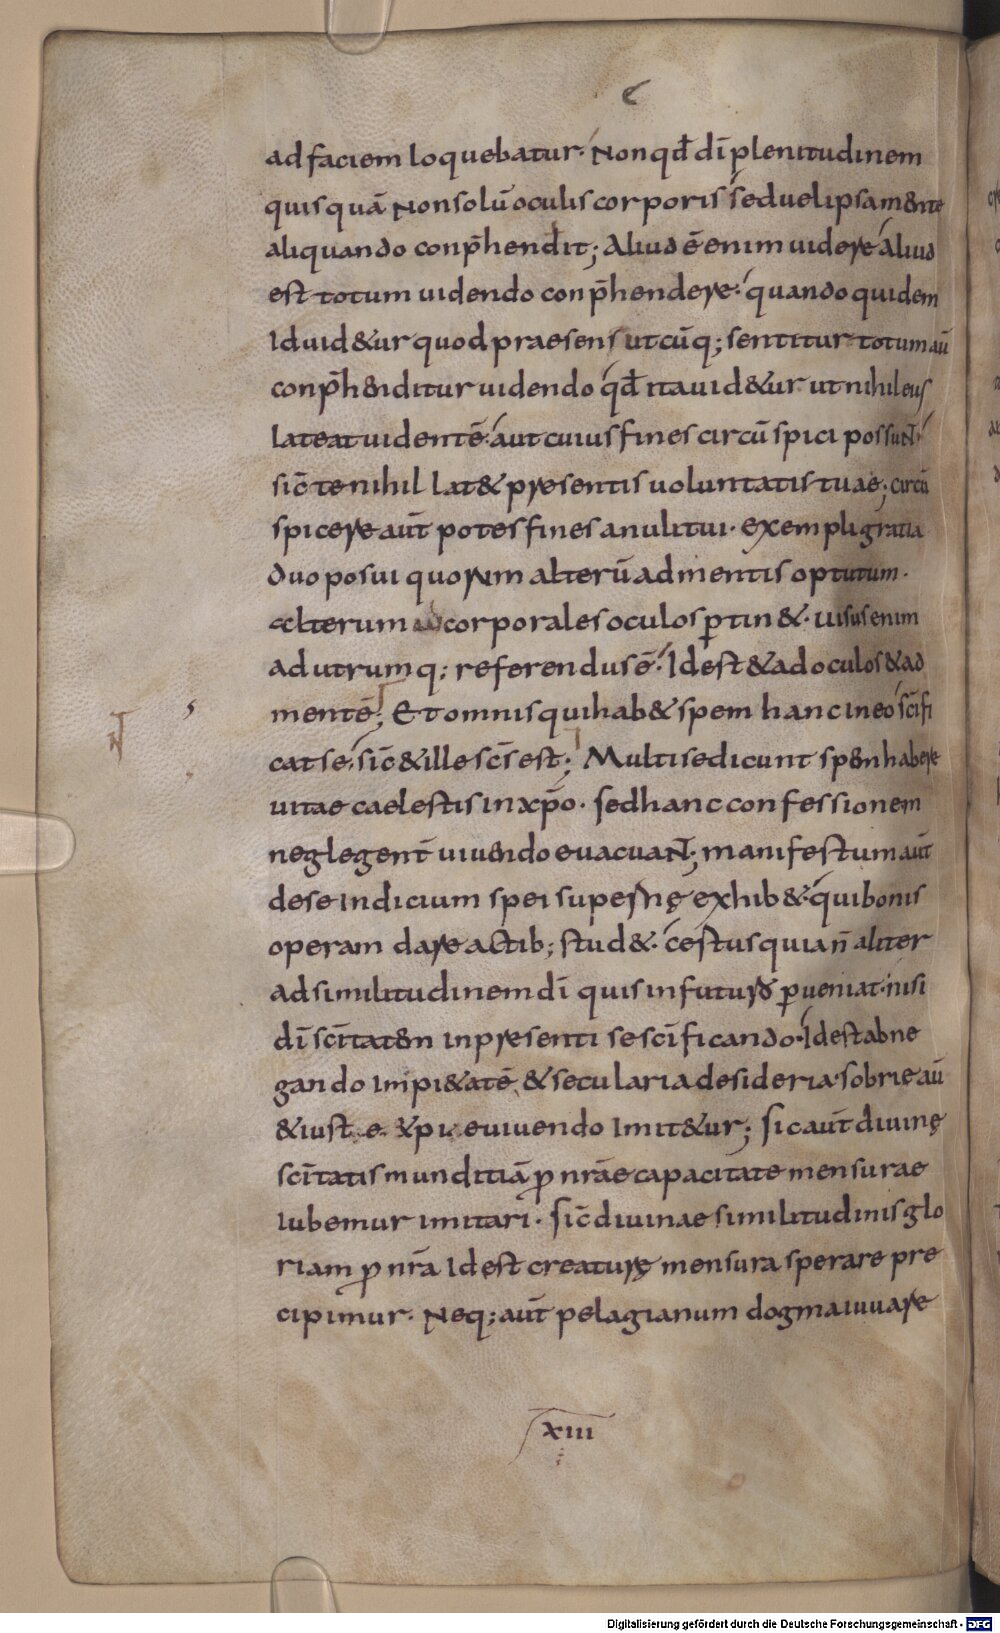 ad faciem loquebatur· Non qđ dī plenitudinem
quisquā Non solū oculis corporis sed uel ipsa m&nte
aliquando conp̄hendit; Aliud ē enim uidere aliud
est totum uidendo conp̄hendere· quando quidem
Id uid&ur quod praesens utcūq; sentitur totum aū
conp̄h&nditur uidendo qđ ita uid&ur ut nihil eius
lateat uidentē· aut cuius fines circūspici possuNT
sic̄ te nihil lat& presentis uoluntatis tuae; circū
spicere aūt potes fines anuli tui· exempli gratia
duo posui quorum alterū ad mentis optutum·
alterum ad corporales oculos ꝑtin&· uisus enim
ad utrumq; referendus ē· Id est & ad oculos & ad
mentē; Et omnis qui hab& spem hanc in eo sc̄ifi
cat se, sic̄ & ille sc̄s est; Multi se dicunt sp&n habere
uitae caelestis in xp̄o· sed hanc confessionem
neglegent̄ uiuendo euacuaNT; manifestum aūt
de se Indicium spei supernę exhib&· qui bonis
operam dare actib; stud&· certus quia n̄ aliter
ad similitudinem dī quis in futuro ꝑueniat· nisi
dī sc̄itat&n in presenti se sc̄ificando· Id est abne
gando Impi&atē & secularia desideria· sobrie aū
& iuste & pie uiuendo Imit&ur; sic aūt diuinę
sc̄itatis munditiā ꝓ nrāe capacitate mensurae
Iubemur imitari· sic̄ diuinae similitudinis glo
riam ꝓ nrā Id est creaturę mensura sperare pre
cipimur· Neq; aūt pelagianum dogma iuuare
xiii